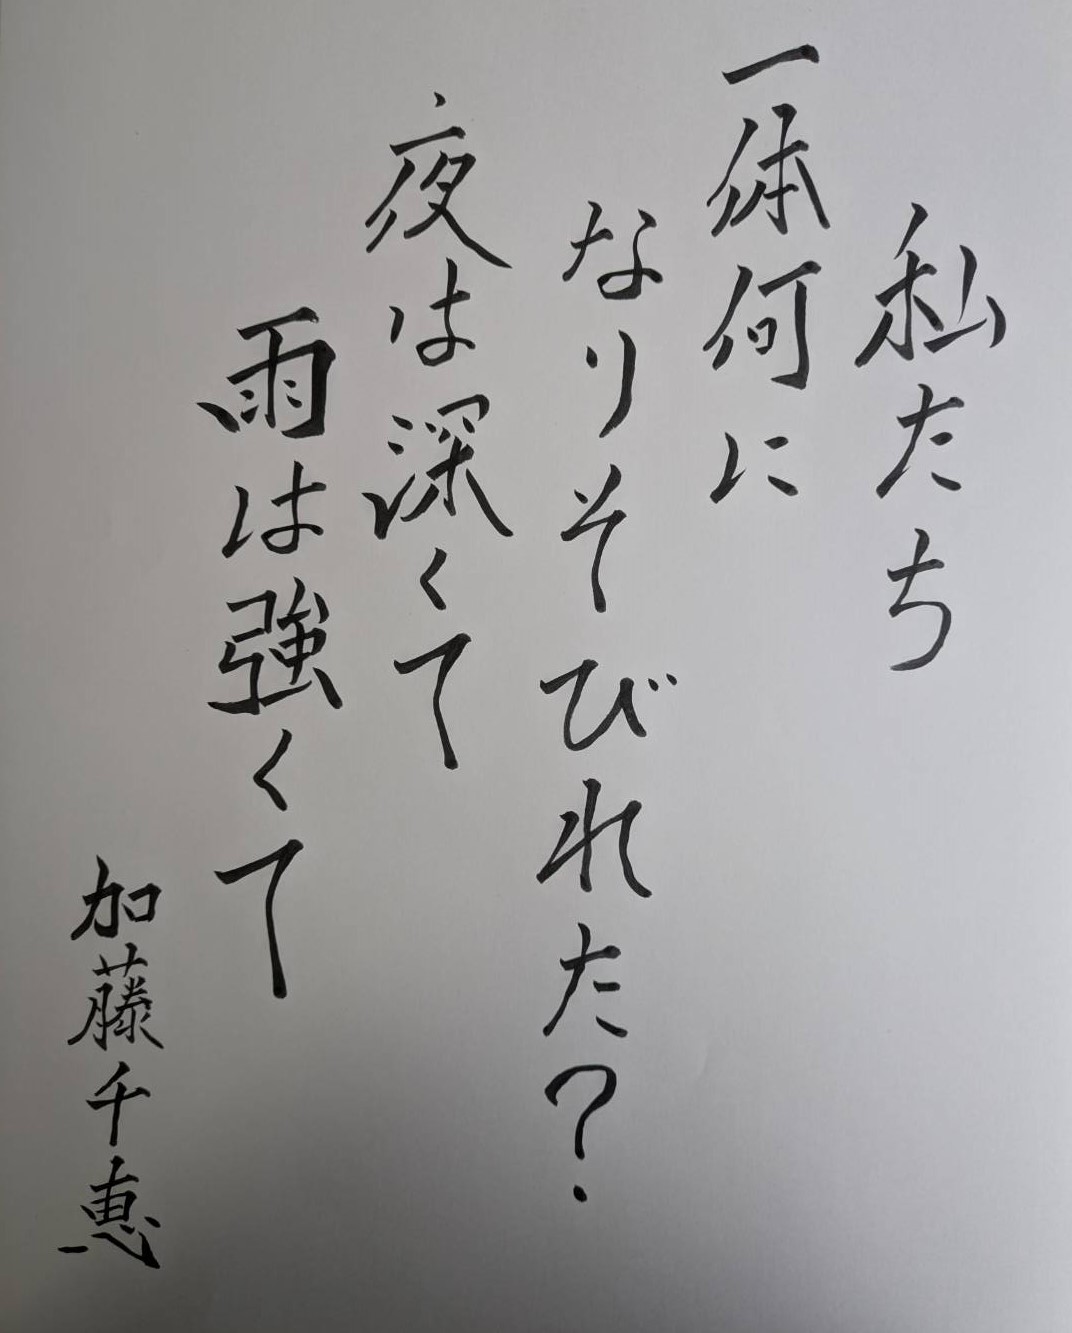 私たち
一体何に
なりそびれた?
夜は深くて
雨は強くて
加藤千恵